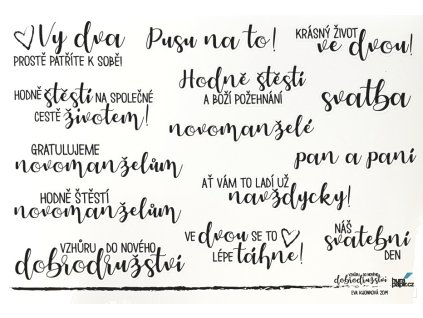 Vy dva
PROSTĚ PATŘÍTE K SOBĚ!
Pusu na to!
KRÁSNÝ ŽIVOT
ve dvou!
HODNĚ štěstí NA SPOLEČNÉ
CESTĚ životem!
Hodně štěstí
A BOŽÍ POŽEHNÁNÍ
svatba
novomanželé
GRATULUJEME
novomanželům
pan a paní
HODNĚ ŠTĚSTÍ
novomanželům
AŤ VÁM TO LADÍ UŽ
navždycky!
VZHŮRU DO NOVÉHO
dobrodružství
VE dvou SE TO
LÉPE táhne!
NÁŠ
svatební
DEN
dobrodružství